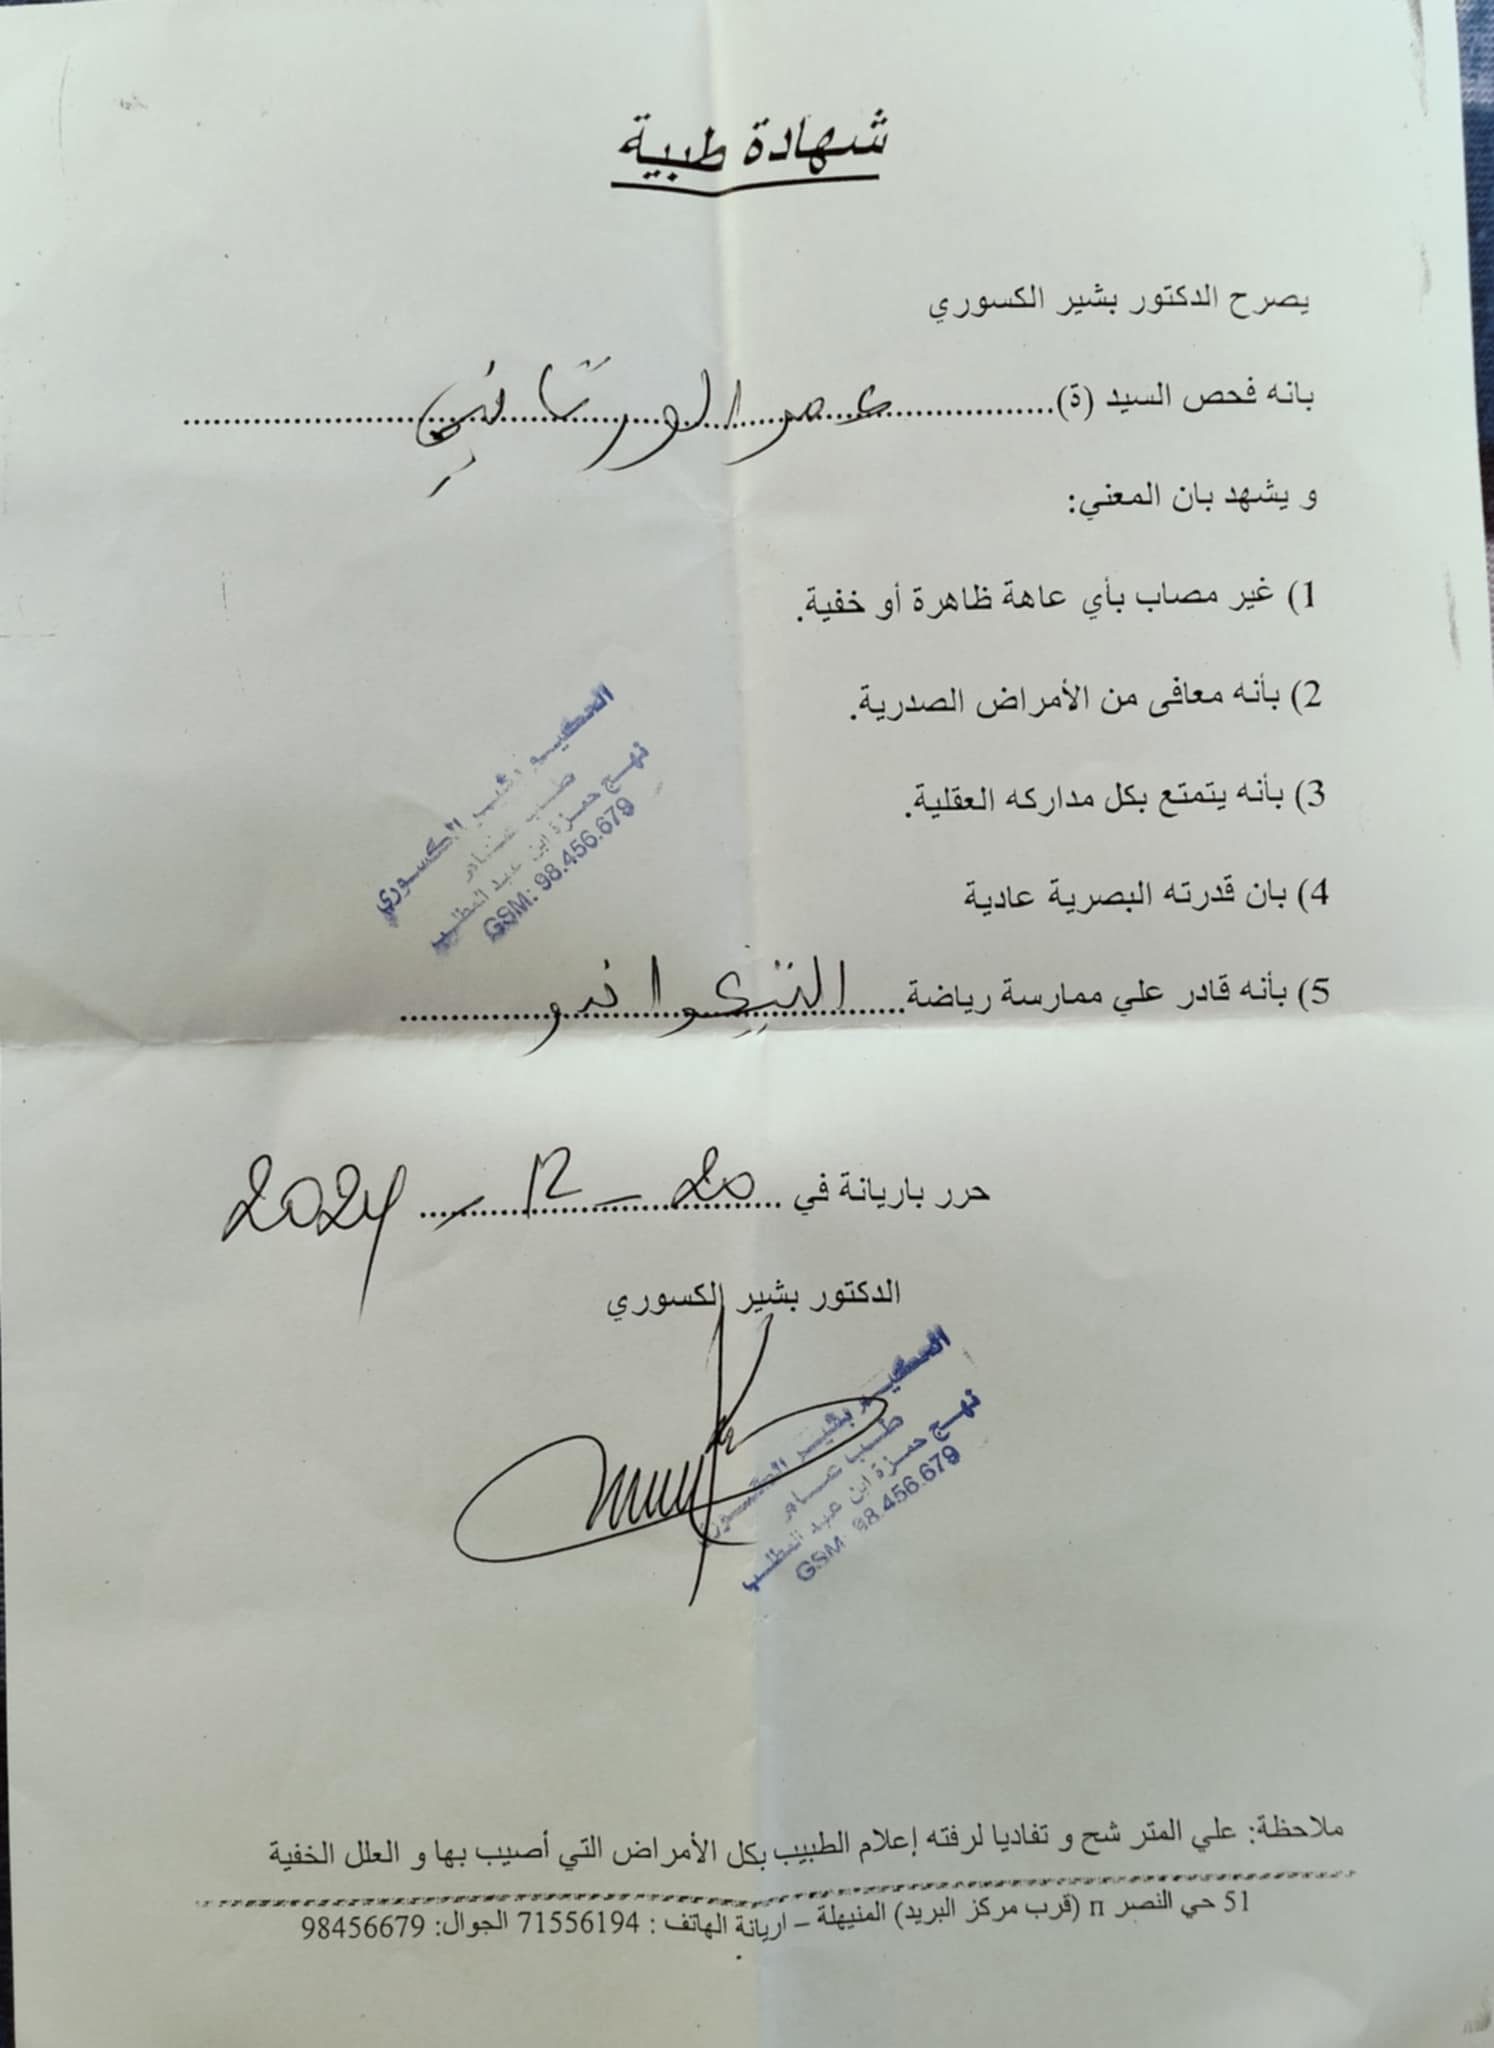 شهادة طبية
يصرح الدكتور بشير الكسوري
بانه فحص السيد (ة).......... عمر الورتاني ..........
و يشهد بان المعني:
1) غير مصاب بأي عاهة ظاهرة أو خفية.
2) بأنه معافى من الأمراض الصدرية.
3) بأنه يتمتع بكل مداركه العقلية.
4) بان قدرته البصرية عادية
5) بأنه قادر علي ممارسة رياضة..... التيكواندو ..........
الحكيم بشير الكسوري
طب عام
نهج حمزة ابن عبد المطلب
GSM: 98.456.679
حرر باريانة في 20 - 12 - 2024
الدكتور بشير الكسوري
الحكيم بشير الكسوري
طب عام
نهج حمزة ابن عبد المطلب
GSM: 98.456.679
ملاحظة: علي المتر شح و تفاديا لرفته إعلام الطبيب بكل الأمراض التي أصيب بها و العلل الخفية
51 حي النصر п (قرب مركز البريد) المنيهلة – اريانة الهاتف : 71556194 الجوال: 98456679